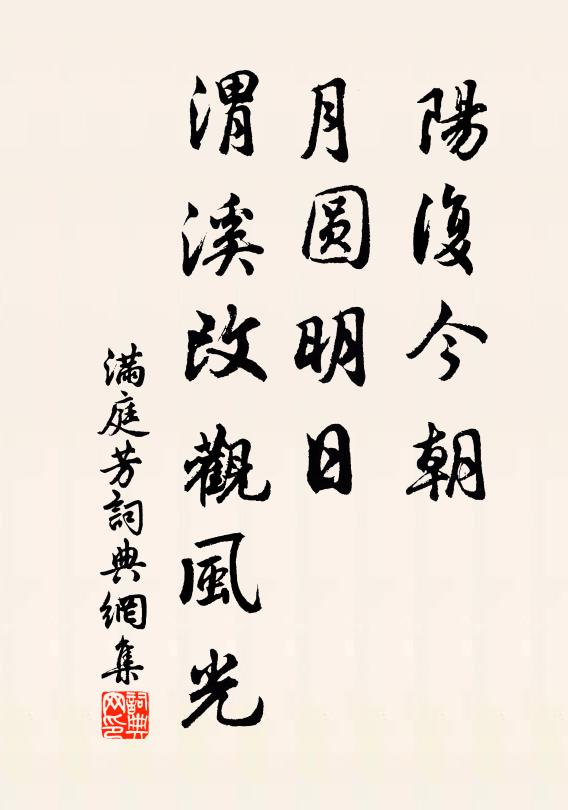 陽復今朝
月圓明日
渭溪改觀風光
滿庭芳詞典網集
詞典
网印